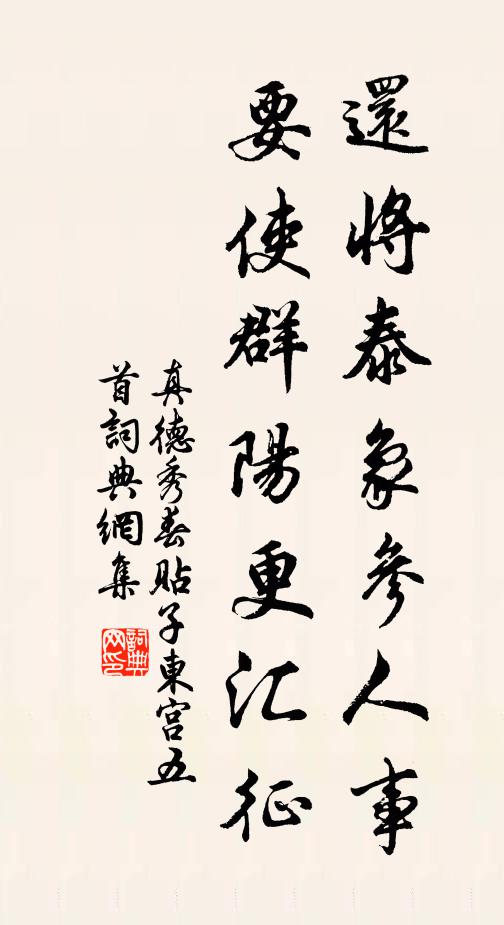 還將泰象參人事
要使群陽更汇征
真德秀春貼子東宮五
首詞典網集
詞典
网印